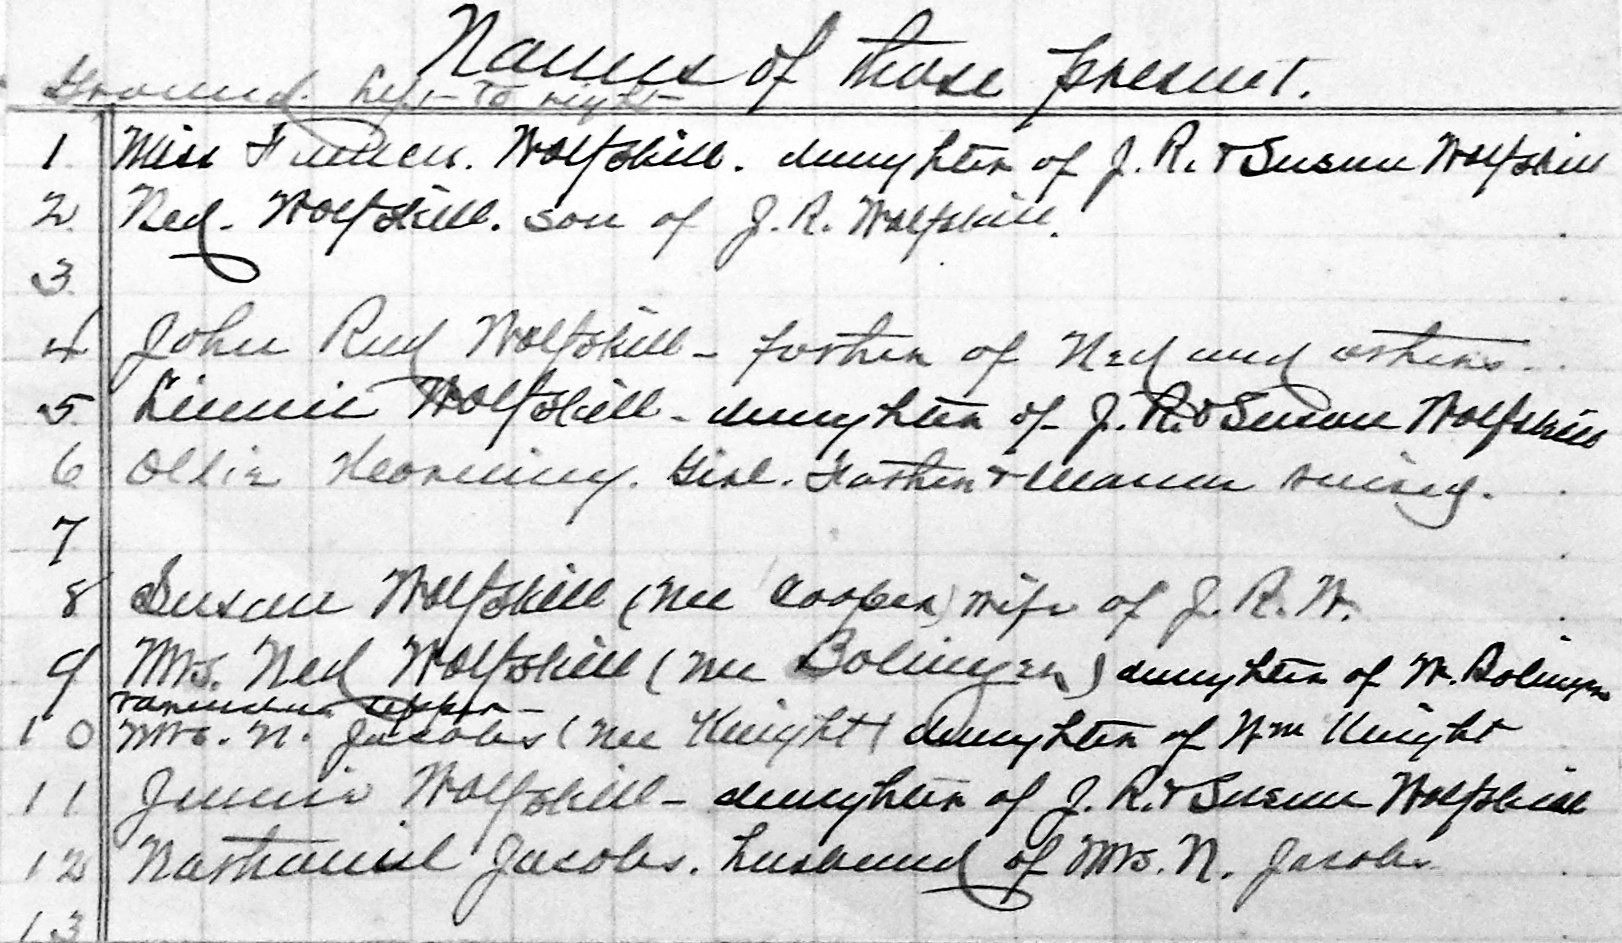 Names of those present.
Ground. Left to right
1. Miss Frances. Wolfskill. daughter of J. R. & Susan Wolfskill
2. Ned. Wolfskill. son of J. R. Wolfskill.
3.
4 John Reid Wolfskill - father of Ned and others.
5. Linnie Wolfskill - daughter of J. R. & Susan Wolfskill
6 Ollie Girl. Father & Mama
7
8 Susan Wolfskill (nee Cooper) wife of J. R. W.
9 Mrs. Ned Wolfskill (nee Bolinger) daughter of W. Bolinger
upper -
10 Mrs. N. Jacobs (nee Knight) daughter of Wm Knight
11 Jennie Wolfskill - daughter of J. R. & Susan Wolfskill
12 Nathaniel Jacobs. husband of Mrs. N. Jacobs
13